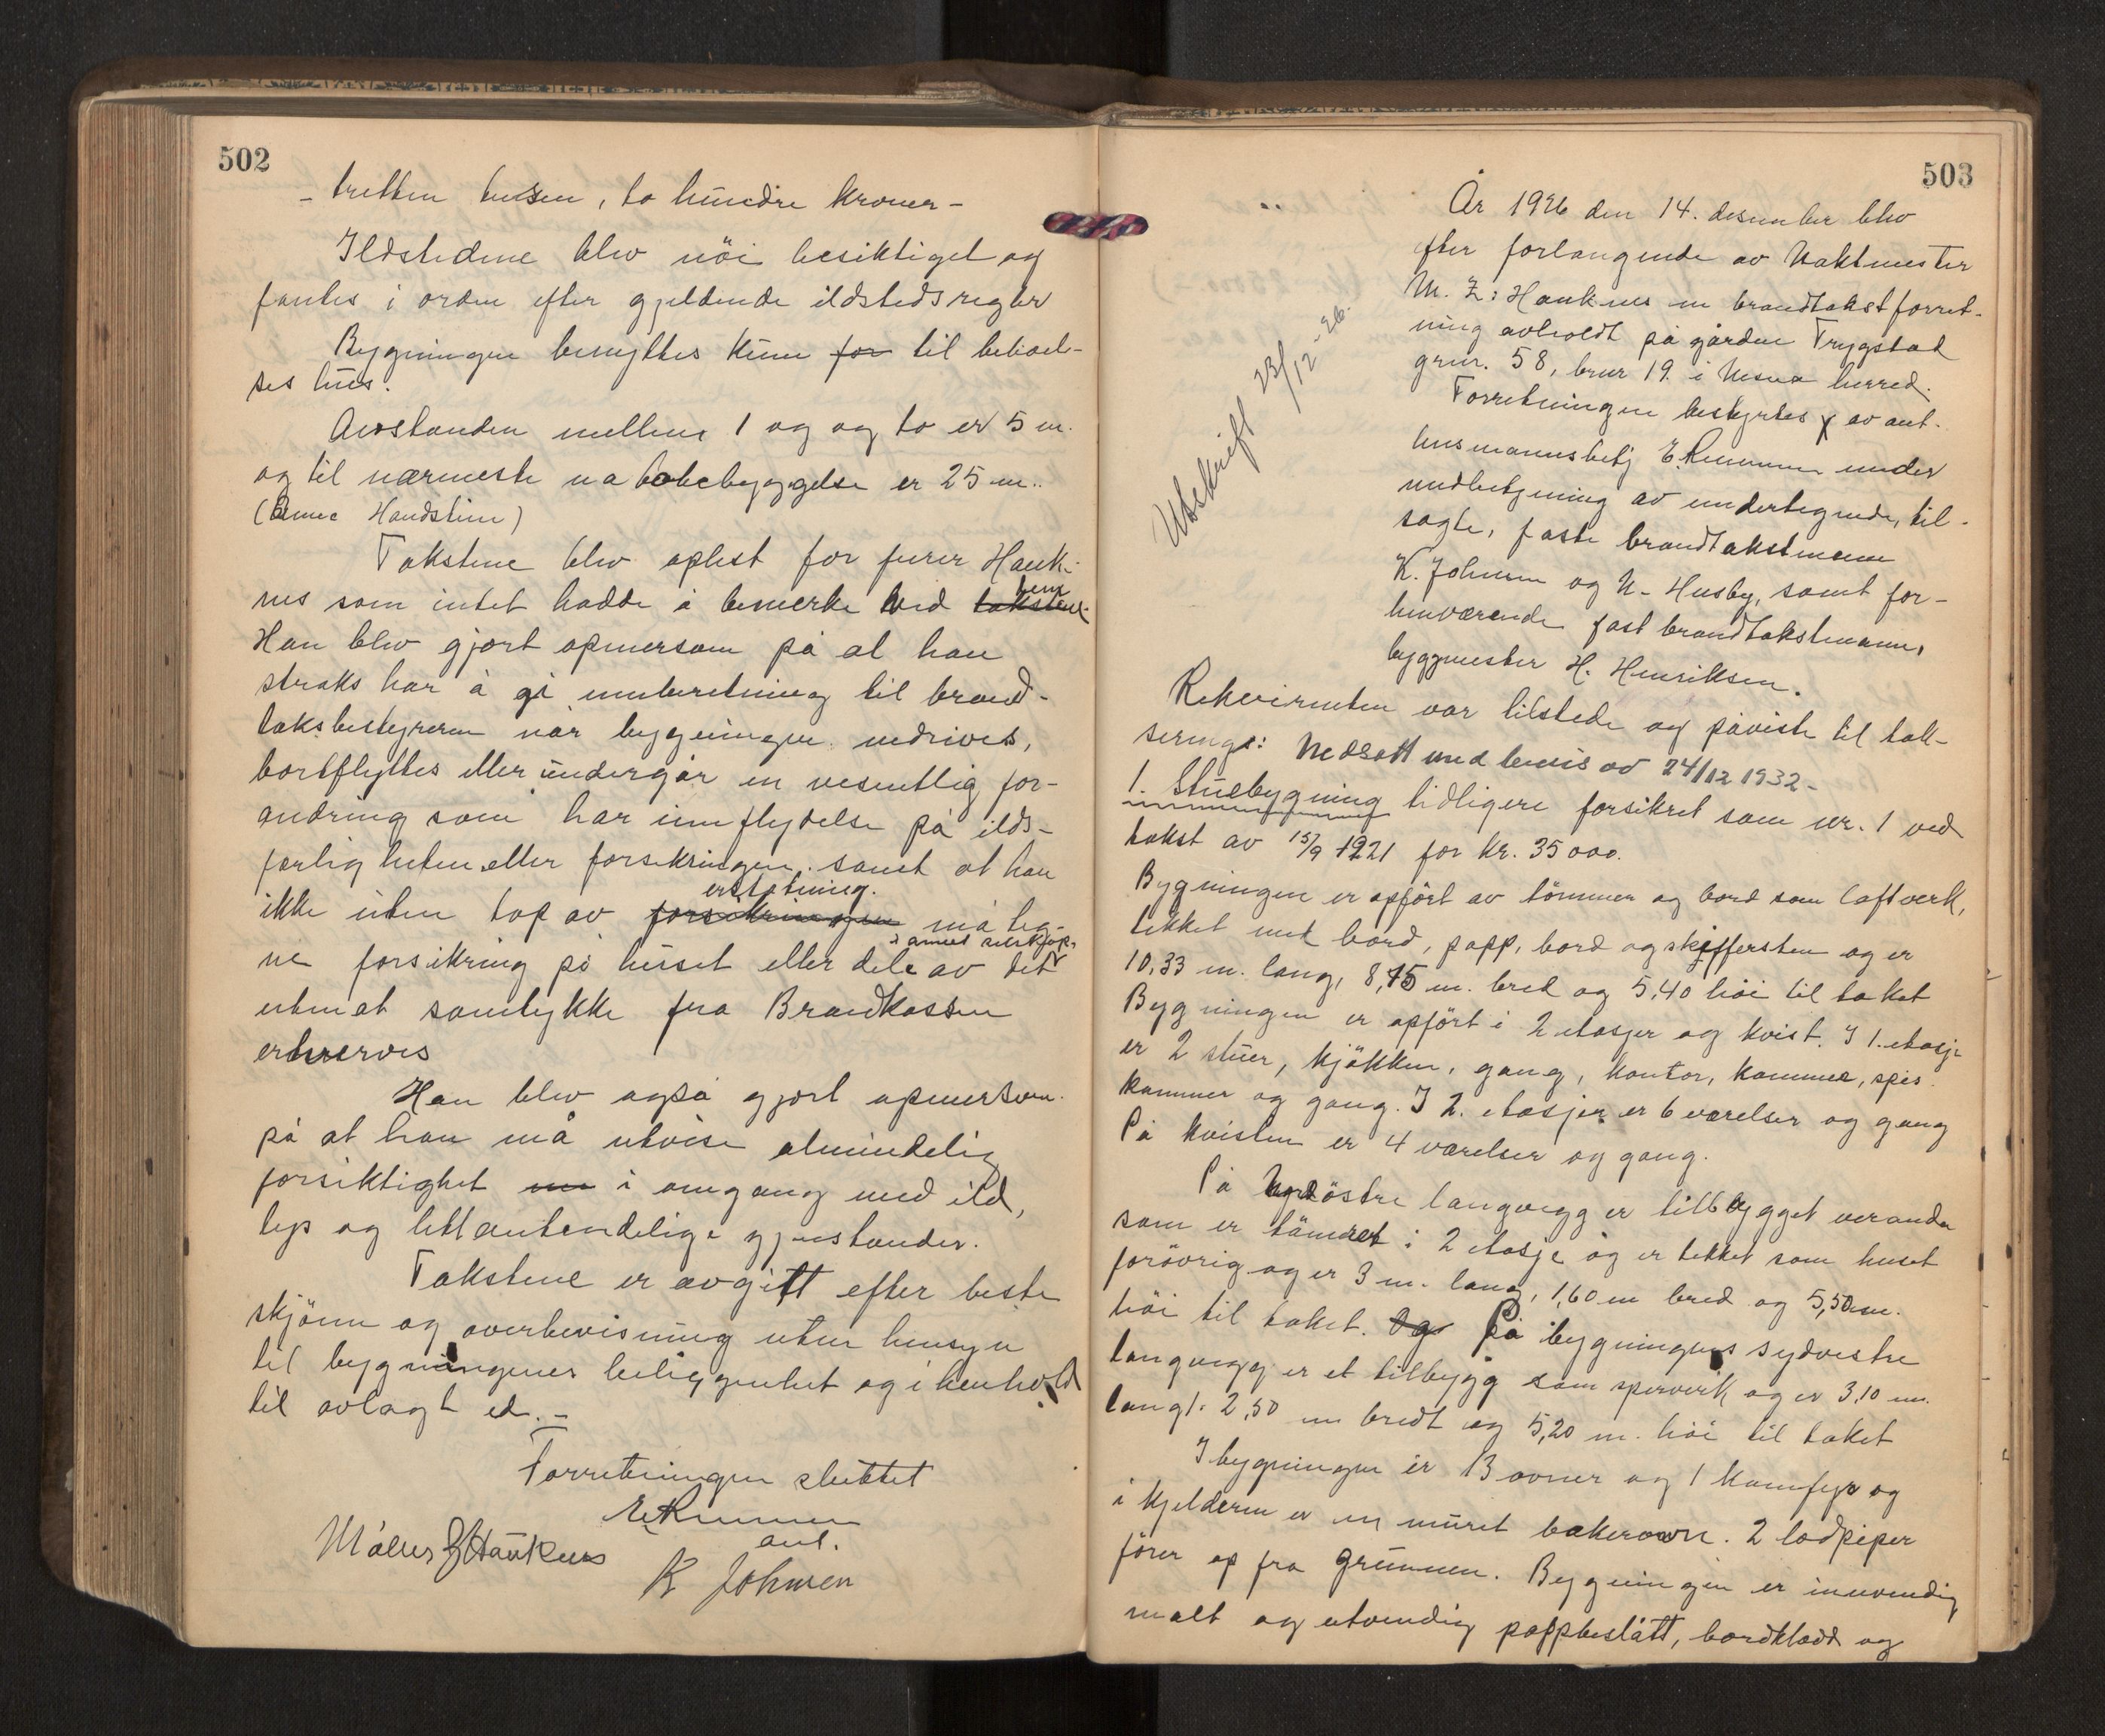 502
- tretten tusen, to hundre kroner -
Ildstedene blev nöi besiktiget og
fantes i orden efter gjeldende ildstedsregler
Bygningen benyttes kun for til beboel-
ses hus.
Avstanden mellem 1 og og to er 5 m.
og til nærmeste nabobebyggelse er 25 m..
Takstene blev oplest for furer Hauk-
nes som intet hadde å bemerke ved takstene dem
Han blev gjort opmersom på at han
straks har å gi innberetning til brand-
taksbestyreren når bygningen nedrives,
bortflyttes eller undergår en vesentlig for-
andring som har innflydelse på ilds-
farligheten eller forsikringen. samt at han
erstatning.
ikke uten tap av forsikringen må teg-
ne forsikring på huset eller dele av det i annet selskap
uten at samtykke fra Brandkassen
erhverves
Han blev også gjort opmersom
på at han må utvise almindelig
forsiktighet i omgang med ild,
lys og lettantendelige gjenstander.
Takstene er avgitt efter beste
skjönn og overbevisning uten hensyn
til bygningenes beliggenhet og i henhold
til avlagt ed. -
Forretningen sluttet
E Remmen
ant.
K Johnsen
503
År 1926 den 14. desember blev
efter forlangende av Vaktmester
M. Z: Hauknes en brandtakstforret-
ning avholdt på gården Trygstad
grnr. 58, brnr 19. i Nesna herred.
Forretningen bestyrtes av ant.
lensmannsbetj E. Remmen under
medbetjening av undertegnede, til-
sagte, faste brandtakstmenn
K. Johnsen og N. Husby, samt for-
henværende fast brandtakstmann,
byggmester H. Henriksen.
Utskrift 23/12-26.
Rekvirenten var tilstede og påviste til tak-
sering: Nedsatt med bevis av 24/12 1932-
1. Stuebygning tidligere forsikret som nr. 1 ved
takst av 15/9 1921 for kr. 35 000.
Bygningen er opfört av tömmer og bord som laftverk,
tekket med bord, papp, bord og skiffersten og er
10,33 m. lang, 8,75 m. bred og 5,40 höi til taket
Bygningen er opfört i 2 etasjer og kvist. I 1. etasje
er 2 stuer, kjökken, gang, kontor, kammer, spis-
kammer og gang. I 2. etasjen er 6 værelser og gang
På kvisten er 4 værelser og gang.
På nordöstre langvegg er tilbygget veranda
som er tömret i 2 etasje og er tekket som huset
forövrig og er 3 m. lang, 1,60 m bred og 5,50 m.
höi til taket. Og På bygningens sydvestre
langvegg er et tilbygg som sperverk og er 3,10 m.
langt. 2,50 m bredt og 5,20 m. höi til taket
I bygningen er 13 ovner og 1 komfyr og
i kjelderen er en muret bakerovn. 2 lodpiper
förer op fra grunnen. Bygningen er innvendig
malt og utvendig pappbeslått, bordkledd og